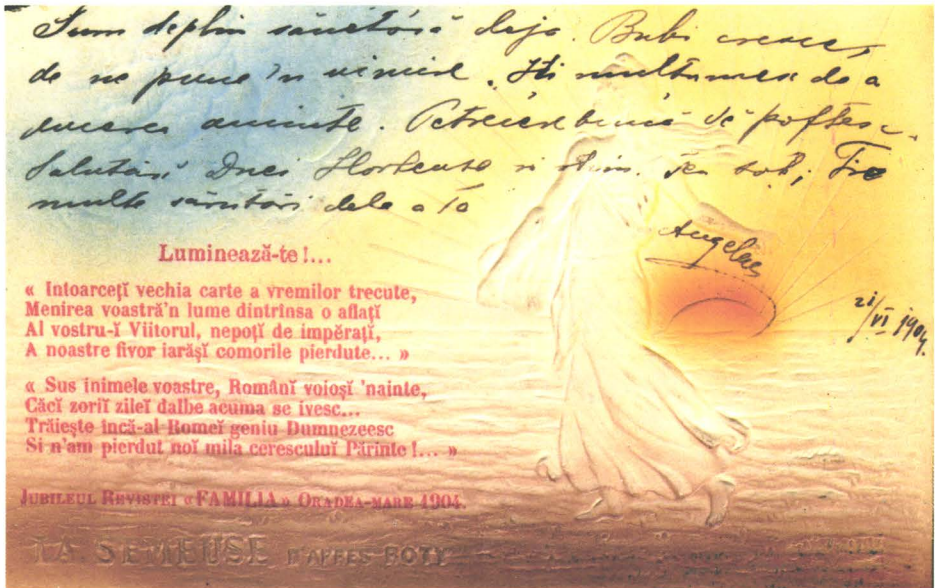 Sum deplin sănătósă deja. Bubi cresce,
de ne pune 'n uimire. Iti multumesc de a
ducerea aminte. Petrecere bună să poftesc.
Salutări Dnei Hortense si
multe sărutări dela a ta
Angela
21/VI 1904.
Luminează-te !...
« Intoarcețĭ vechia carte a vremilor trecute,
Menirea voastră'n lume dintrînsa o aflațĭ
Al vostru-ĭ Viitorul, nepoțĭ de impĕrațĭ,
A noastre fivor iarășĭ comorile pierdute... »
« Sus inimele voastre, Românĭ voioșĭ 'nainte,
Căcĭ zoriĭ zileĭ dalbe acuma se ivesc...
Trăiește incă-al Romeĭ geniu Dumnezeesc
Si n'am pierdut noĭ mila ceresculuĭ Părinte !... »
JUBILEUL REVISTEI « FAMILIA » ORADEA-MARE 1904.
LA SEMEUSE D'APRES ROTY